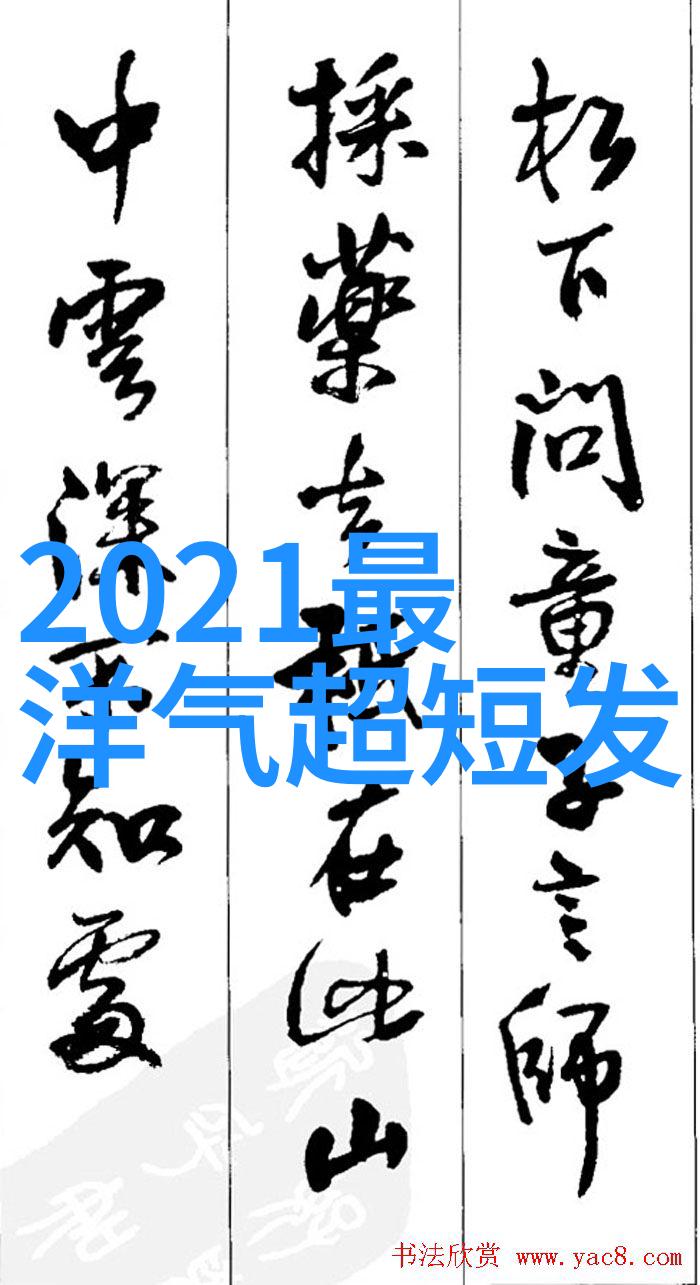 松下問童子言師
採藥去在此山
中雲深不知處
2021最
洋气超短发
书法欣赏 www.yac8.com